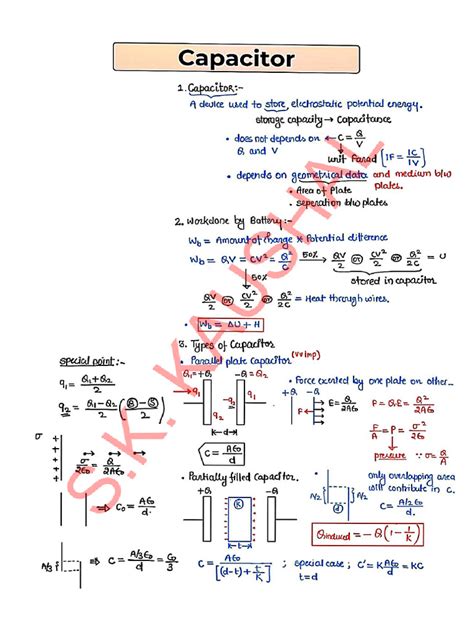 Capacitor
1. Capacitor:-
A device used to store, electrostatic potential energy.
storage capacity → Capacitance
• does not depends on ← C = Q/V
Q and V
unit Farad [1F = 1C/1V]
• depends on geometrical data and medium b/w
plates.
• Area of Plate
• seperation b/w plates
2. Workdone by Battery:-
W_b = Amount of Charge × Potential difference
W_b = QV = CV² = Q²/C 50% → QV/2 or CV²/2 or Q²/2C = U
stored in capacitor
50%
QV/2 or CV²/2 or Q²/2C = Heat through wires.
• W_b = ΔU + H
3. Types of Capacitor
• Parallel plate Capacitor (vv imp)
special point:-
q₁ = Q₁+Q₂/2
q₂ = Q₁-Q₂/2
Q₁=+Q -Q=Q₂
q₁ q₂
←d→
C = Aε₀/d
• Force exerted by one plate on other...
+Q -Q
E = Q/2Aε₀
F = QE = Q²/2Aε₀
F/A = P = σ²/2ε₀
pressure ∵ σ = Q/A
σ
σ/2ε₀ = Q/2Aε₀
⇒ C₀ = Aε₀/d
A/3 ⇒ C = A/3ε₀/d = C₀/3
• Partially filled Capacitor
+Q -Q
K
←t→
C = Aε₀/[(d-t)+t/K] ; special case; C' = KAε₀/d = KC
t=d
only overlapping area
will contribute in C.
A/2 A/2
d
C = A/2ε₀/d
Q_induced = -Q(1-1/K)
S.K. KAUSHAL